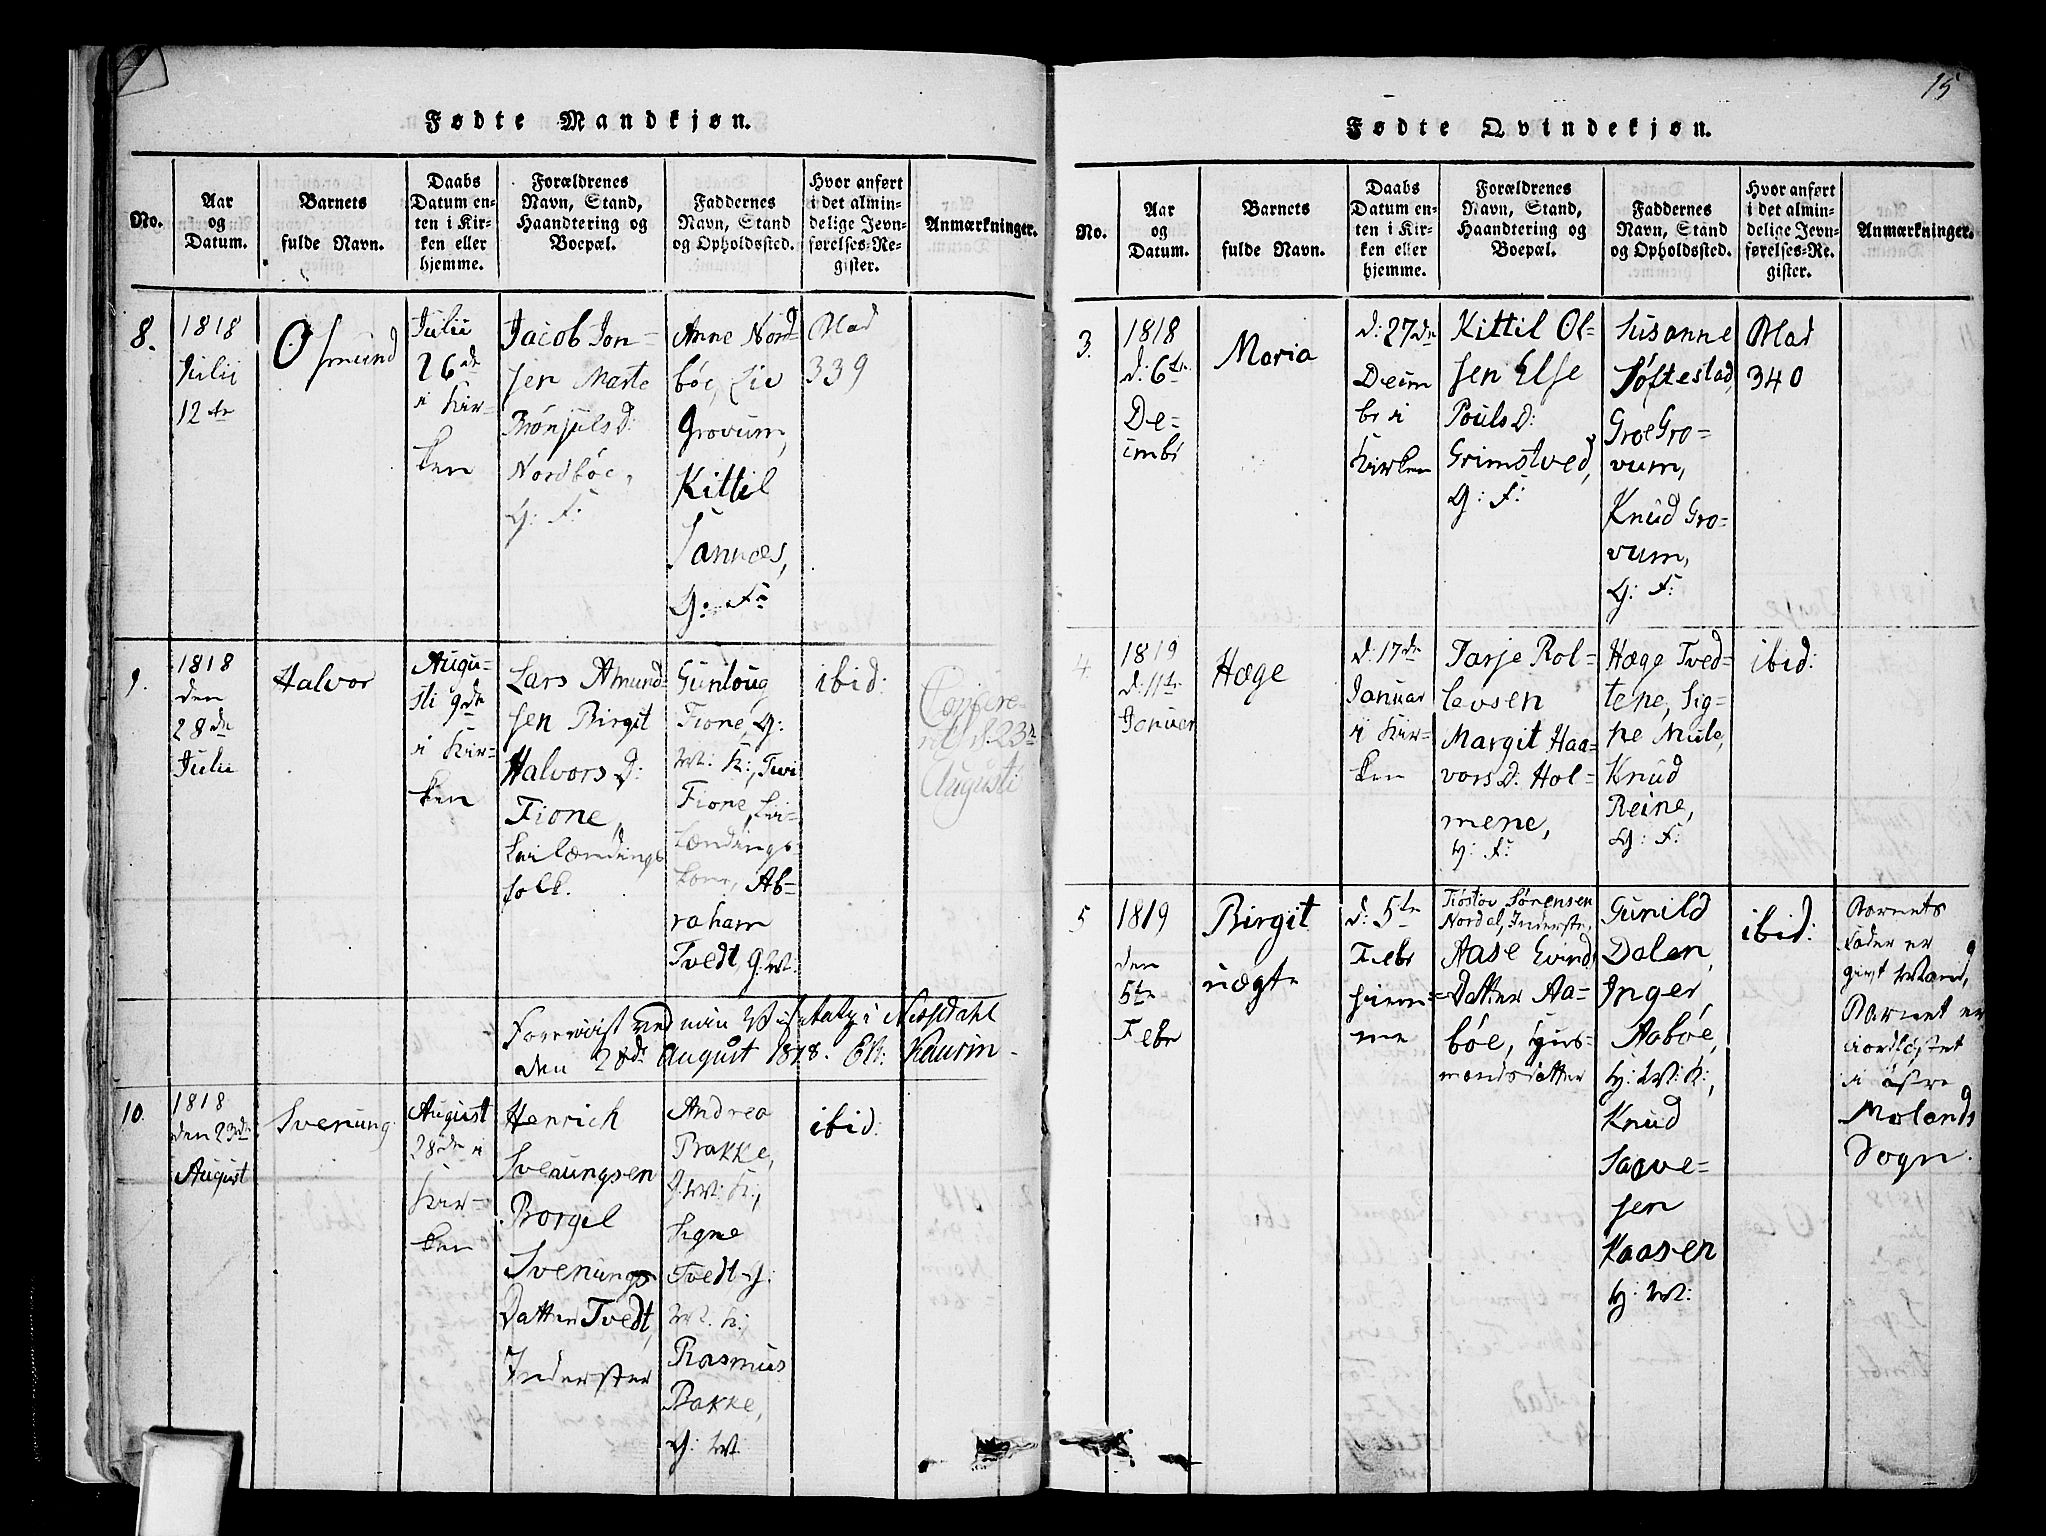 15
Fødte Mandkjøn.
No.
Aar
og
Datum.
Barnets
fulde Navn.
Daabs
Datum en-
ten i Kir-
ken eller
hjemme.
Forældrenes
Navn, Stand,
Haandtering og
Boepæl.
Faddernes
Navn, Stand
og Opholdssted.
Hvor anført
i det almin-
delige Jevn-
førelses-Re-
gister.
Anmærkninger.
8.
1818
Julii
12te
Osmund
Julii
26de
i Kir-
ken
Jacob Jon-
sen Marte
Brønjulsd:
Nordbøe,
G: F:
Anne Nord-
bøe, Liv
Grovum,
Kittil
Sannæs,
G: F:
Blad
339
9.
1818
den
28de
Julii
Halvor
Augu-
sti 9de
i Kir-
ken
Lars Amund-
sen Birgit
Halvors D:
Fione,
folk.
Gunloug
Fione, G:
M: K:,
Fione,
Kone, Ab-
raham
Tvedt, G: M:
ibid:
Confere-
1823
Augusti
Foreviist ved min Visitatz i Nissedahl
den 28de August 1818. Kaurin.
10.
1818
den 23de
August
Svenung
August
28de i
Kir-
ken
Henrich
Svenungsen
Borgil
Svenungs
Datter Tvedt,
Inderster
Andrea
Bakke,
G: M: K:,
Signe
Tvedt G:
M: K:,
Rasmus
Bakke,
G: M:
ibid:
Fødte Qvindekjøn.
No.
Aar
og
Datum.
Barnets
fulde Navn.
Daabs
Datum en-
ten i Kir-
ken eller
hjemme.
Forældrenes
Navn, Stand,
Haandtering og
Boepæl.
Faddernes
Navn, Stand
og Opholdssted.
Hvor anført
i det almin-
delige Jevn-
førelses-Re-
gister.
Anmærkninger.
3.
1818
d: 6te
De-
cembr
Maria
d: 27de
Decem
br i
Kirken
Kittil Ol-
sen Else
Pouls D:
Grimstved,
G: F:
Susanne
Søftestad,
Groe Gro-
vum,
Knud Gro-
vum,
G: F:
Blad
340
4
1819
d: 11te
Januar
Hæge
d: 17de
Januar
i Kir-
ken
Tarje Rol-
levsen
Margit Haa-
vors D: Hol-
mene,
G: F:
Hæge Tved-
tene, Sig-
ne Mule,
Knud
Reine,
G: F:
ibid:
5
1819
den
5te
Febr
Birgit
uægte
d: 5te
Febr
hiem-
me
Tiøstov Sørensen
Nordal, Inderste,
Aase Evind
Datter Aa-
bøe, Huus-
mandsdatter
Gunild
Dalen,
Inger
Aabøe,
G: M: K:,
Knud
Saave-
sen
Kaasen
G: M:
ibid:
Barnets
Fader er
givt Mand,
Barnet er
i østre
Molands
Sogn.